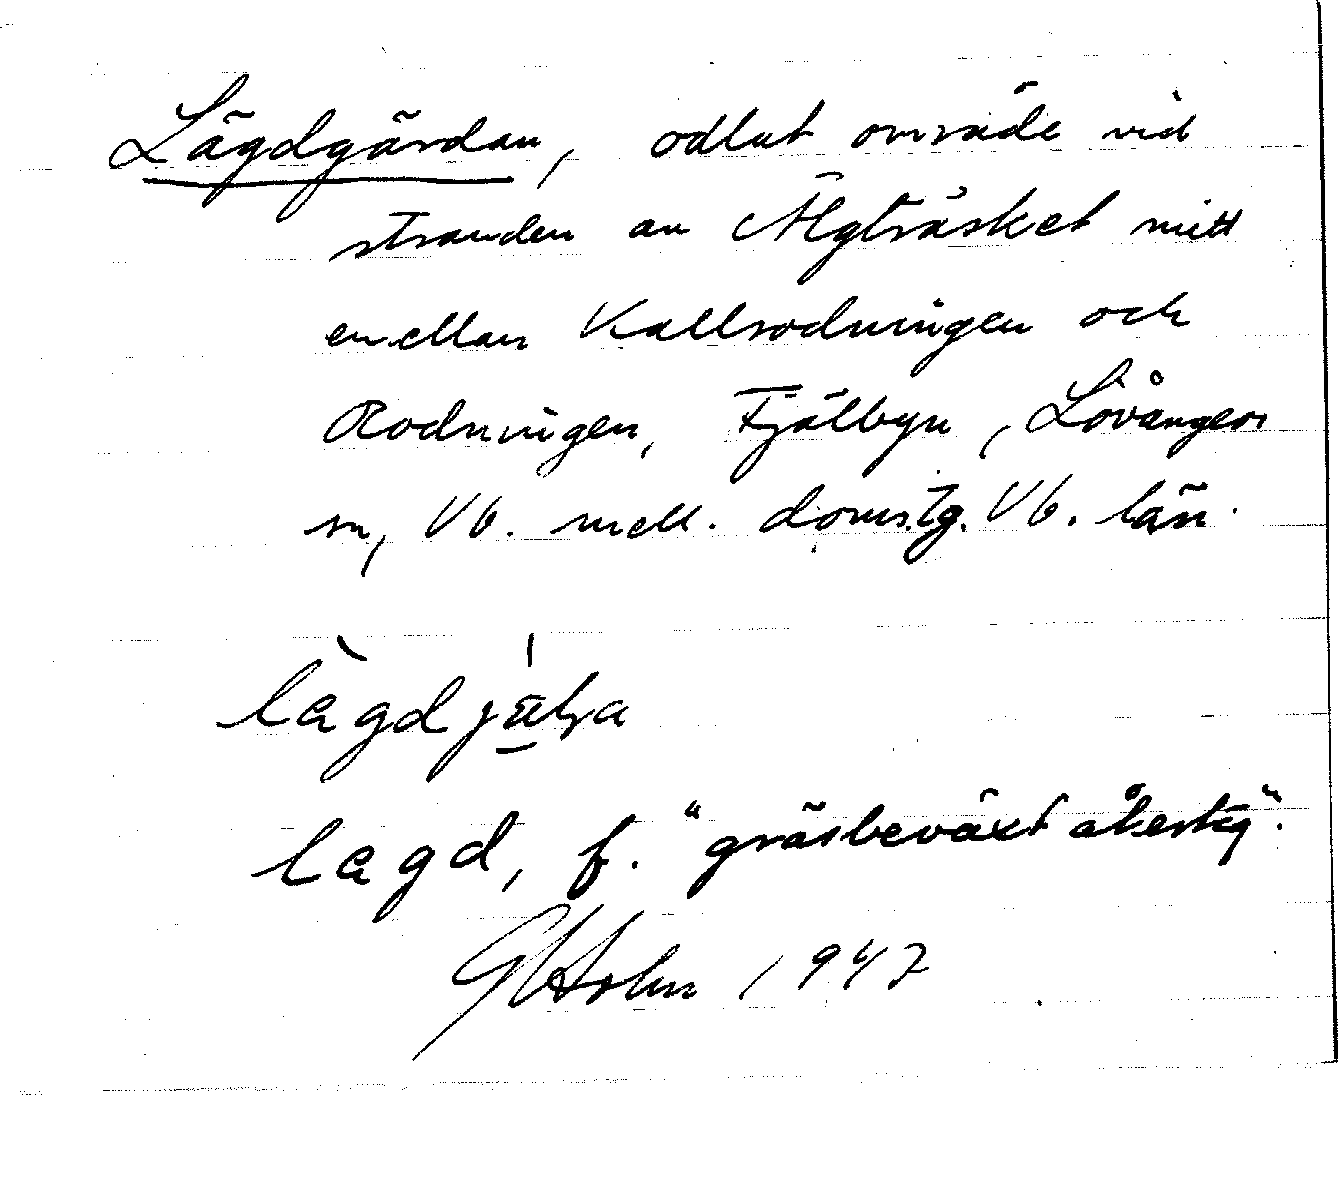 Lägdgärdan, odlat område vid
stranden av Älgträsket mitt
emellan Kallrodningen och
Rodningen, Fjälbyn, Lövångers
sn, Vb. mell. doms.tg. Vb. län.
lägd, f. "gräsbeväxt åkerteg".
Holm 1947